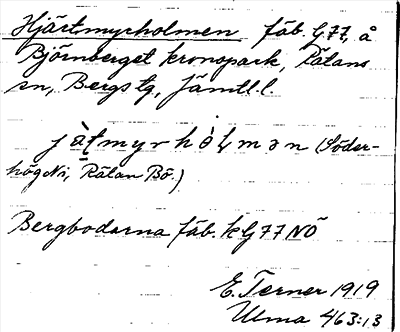 Hjärtmyrholmen fäb. G77, å
Björnberget kronopark, Rätans
sn, Bergs tg, Jämtl. l.
jàṭmyrhòḷmən (Söder-
hög Ni, Rätan Bö.)
Bergbodarna fäb. k G77 NÖ
E. Terner 1919
Ulma 463:13